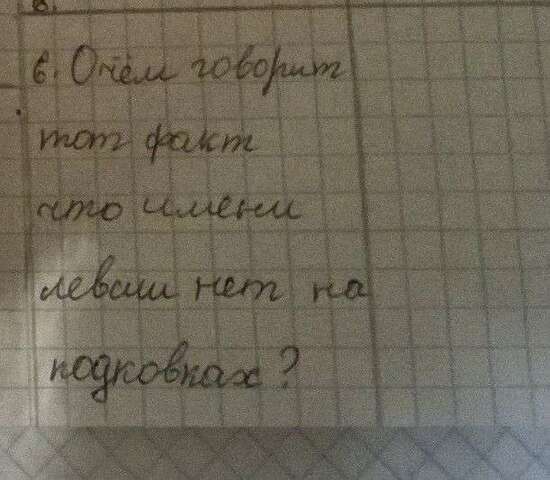 6. Очём говорит
тот факт
что имени
левши нет на
подковках?